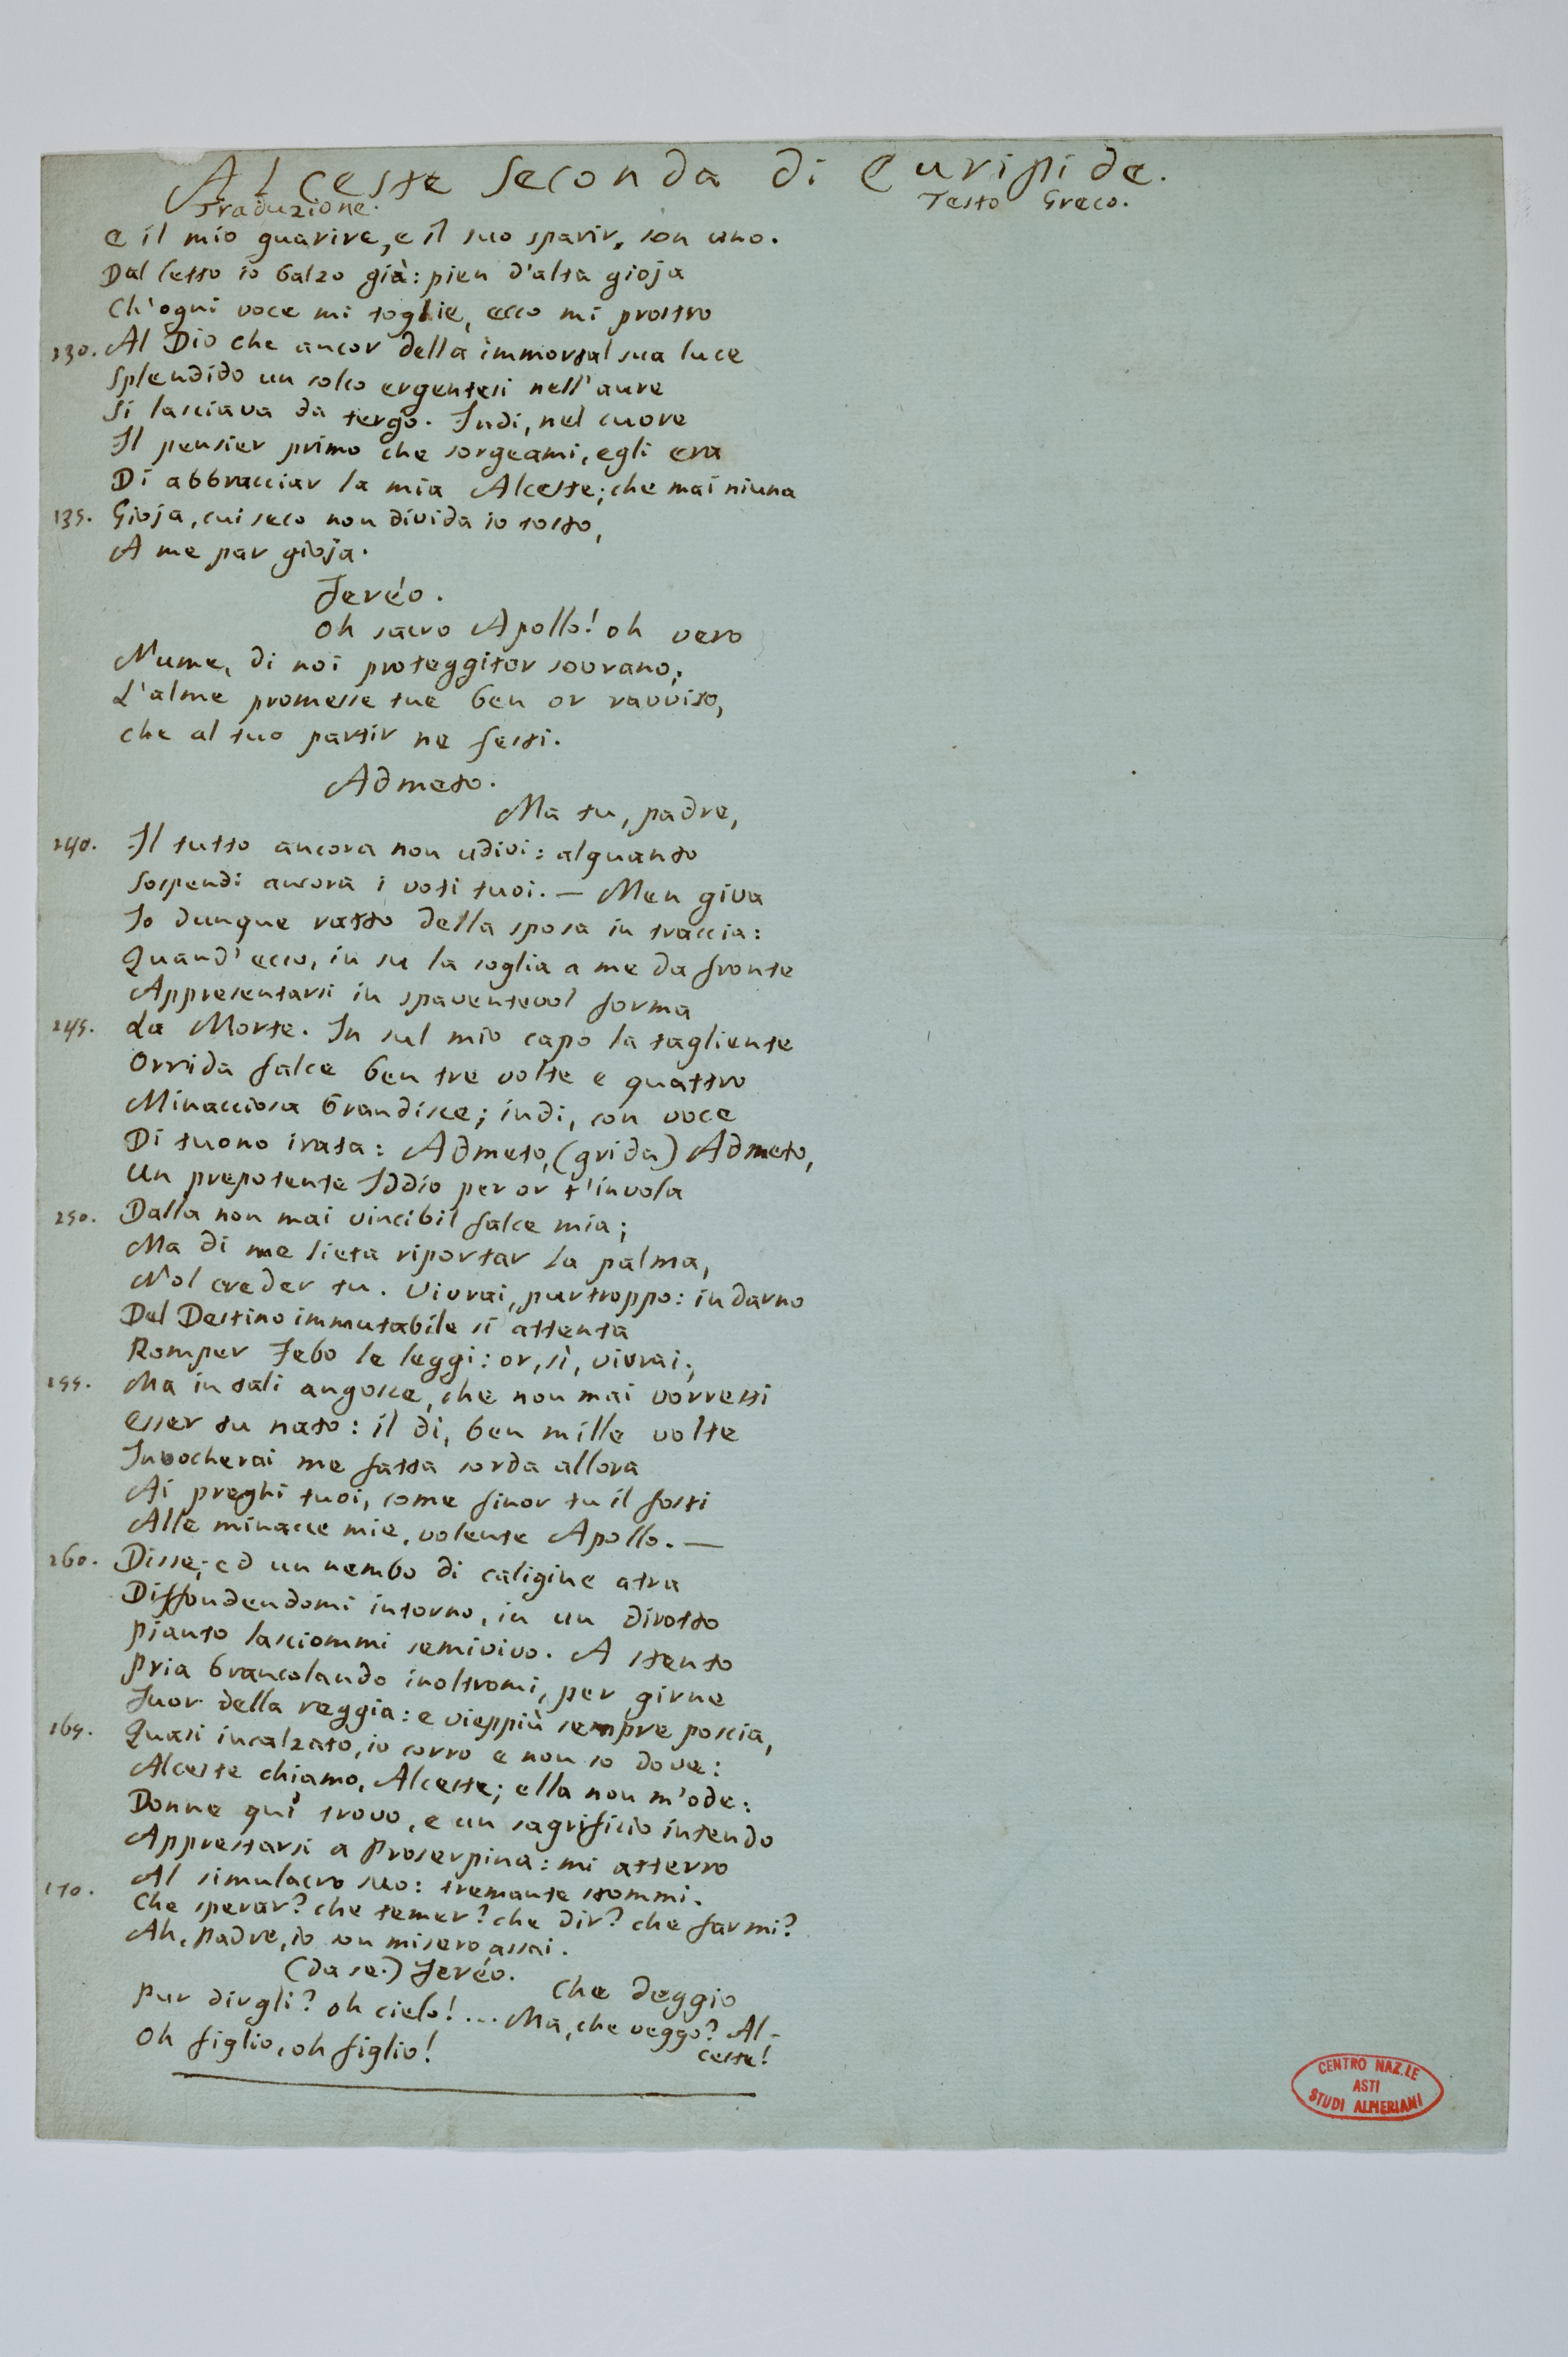 Alceste Seconda di Euripide.
Traduzione. Testo Greco.
E il mio guarire, e il suo sparir, son uno.
Dal letto io balzo già: pien d'alta gioja
Ch'ogni voce mi toglie, ecco mi prostro
230. Al Dio che ancor della immortal sua luce
Splendido un solco ergentesi nell'aure
Si lasciava da tergo. Indi, nel cuore
Il pensier primo che sorgeami, egli era
Di abbracciar la mia Alceste; che mai niuna
235. Gioja, cui seco non divida io tosto,
A me par gioja.
Feréo.
Oh sacro Apollo! oh vero
Nume, di noi proteggitor sovrano,
L'alme promesse tue ben or ravviso,
che al tuo partir ne festi.
Admeto.
Ma tu, padre,
240. Il tutto ancora non udivi: alquanto
Sospendi ancora i voti tuoi. — Men giva
Io dunque ratto della sposa in traccia:
Quand'ecco, in su la soglia a me da fronte
Appresentarsi in spaventevol forma
245. La Morte. In sul mio capo la tagliente
Orrida falce ben tre volte e quattro
Minacciosa brandisce; indi, con voce
Di tuono irata: Admeto, (grida) Admeto,
Un prepotente Iddio per or t'invola
250. Dalla non mai vincibil falce mia;
Ma di me lieta riportar la palma,
Nol creder tu. Vivrai, purtroppo: indarno
Del Destino immutabile si attenta
Romper Febo le leggi: or, sì, vivrai;
255. Ma in tali angosce, che non mai vorresti
Esser tu nato: il dì, ben mille volte
Invocherai me fatta sorda allora
Ai preghi tuoi, come finor tu il fosti
Alle minacce mie, volente Apollo. —
260. Disse; ed un nembo di caligine atra
Diffondendomi intorno, in un dirotto
pianto lasciommi semivivo. A stento
Pria brancolando inoltromi, per girne
Fuor della reggia: e vieppiù sempre poscia,
265. Quasi incalzato, io corro e non so dove:
Alceste chiamo, Alceste; ella non m'ode:
Donne quì trovo, e un sagrificio intendo
Apprestarsi a Proserpina: mi atterro
Al simulacro suo: tremante stommi.
270. Che sperar? che temer? che dir? che farmi?
Ah, padre, io son misero assai.
(da se.) Feréo.
Che deggio
Pur dirgli? oh cielo! ... Ma, che veggo? Al-
ceste!
Oh figlio, oh figlio!
CENTRO NAZ.LE
ASTI
STUDI ALFIERIANI